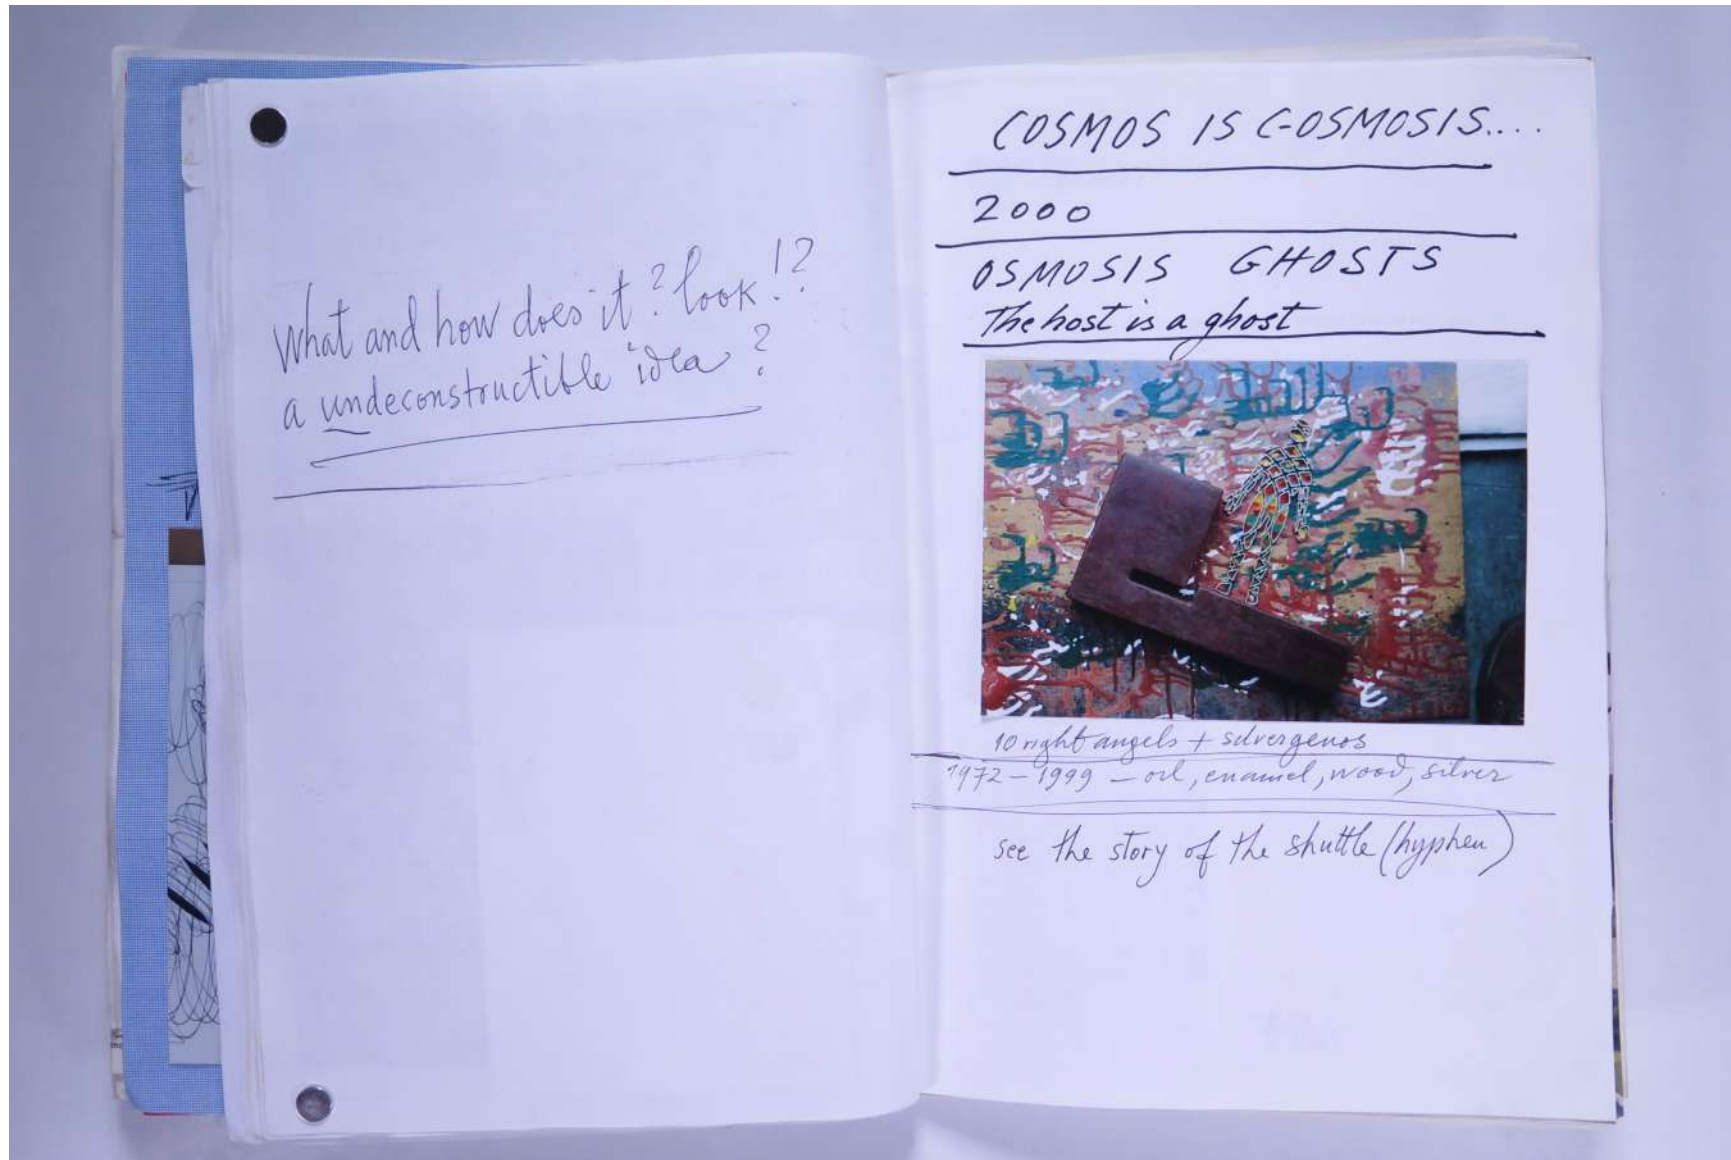 What and how does it? look!?
a undeconstructible idea?
COSMOS IS C-OSMOSIS....
2000
OSMOSIS GHOSTS
The host is a ghost
10 right angels + silvergenos
1972 – 1999 – oil, enamel, wood, silver
see the story of the shuttle (hyphen)